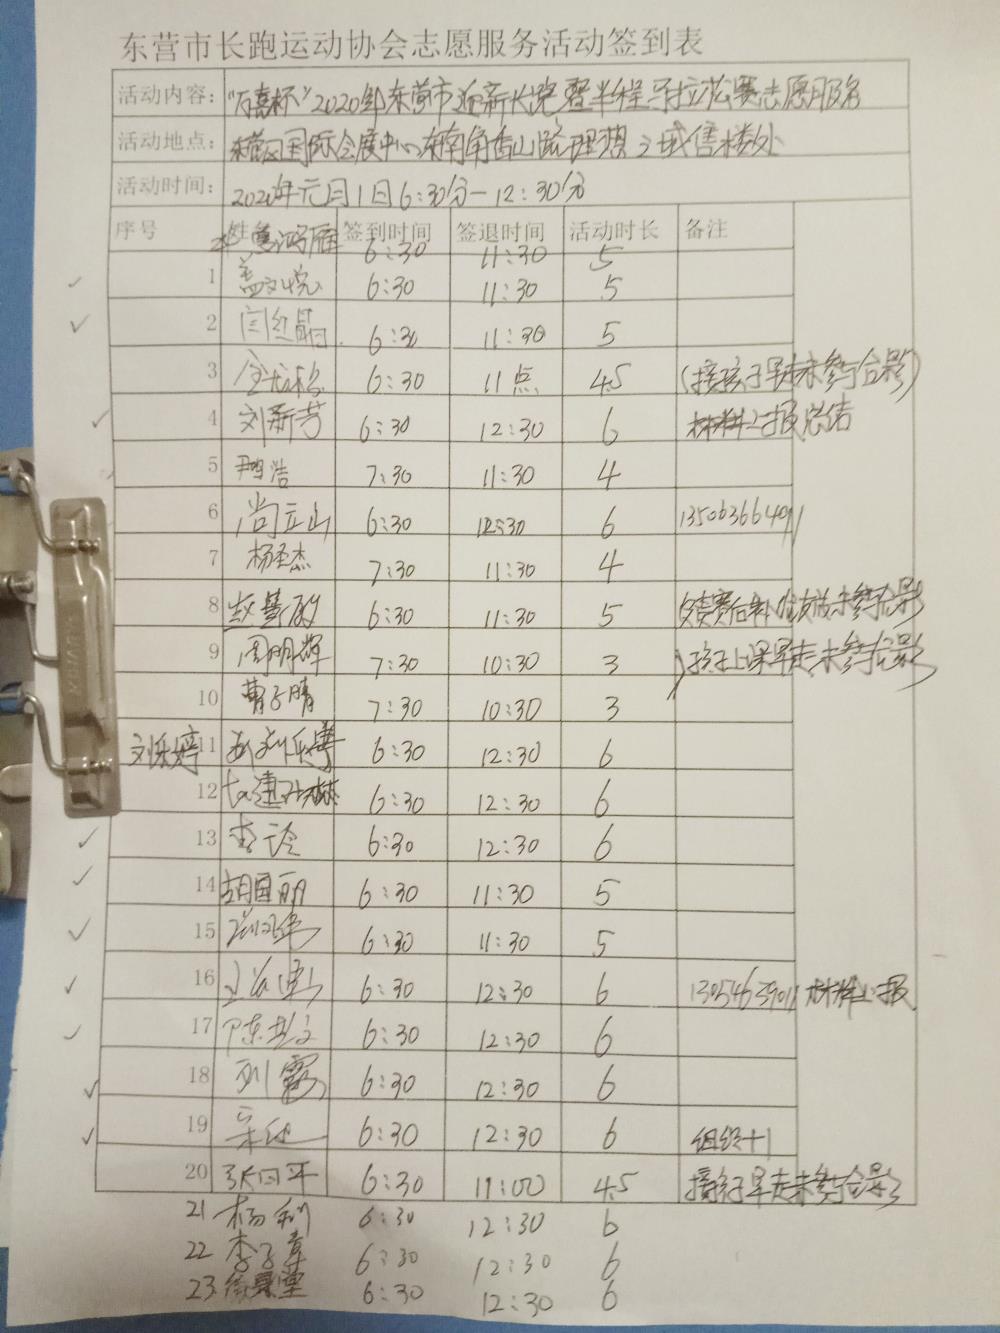 东营市长跑运动协会志愿服务活动签到表
活动内容: "万嘉杯"2020年东营市迎新长跑暨半程马拉松赛志愿服务
活动地点: 东营区国际会展中心东南角香山路理想之城售楼处
活动时间: 2020年元月1日6:30分—12:30分
序号 姓 签到时间 签退时间 活动时长 备注
鸿雁 6:30 11:30 5
1 盖文悦 6:30 11:30 5
2 闫红晶 6:30 11:30 5
3 6:30 11点 4.5 (接孩子早走未参与合影)
4 刘新芳 6:30 12:30 6 材料上报总结
5 尹浩 7:30 11:30 4
6 尚立山 6:30 12:30 6
7 杨圣杰 7:30 11:30 4
8 赵慧敏 6:30 11:30 5 负责赛后补给发放未参与合影
9 周明辉 7:30 10:30 3 孩子上课早走未参与合影
10 曹子晴 7:30 10:30 3
刘乐婷 11 6:30 12:30 6
12 6:30 12:30 6
13 李玲 6:30 12:30 6
14 胡国丽 6:30 11:30 5
15 6:30 11:30 5
16 6:30 12:30 6 材料上报
17 陈 6:30 12:30 6
18 刘霞 6:30 12:30 6
19 宋 6:30 12:30 6 组织+1
20 张曰平 6:30 11:00 4.5 接孩子早走未参与合影
21 杨利 6:30 12:30 6
22 李子章 6:30 12:30 6
23 6:30 12:30 6